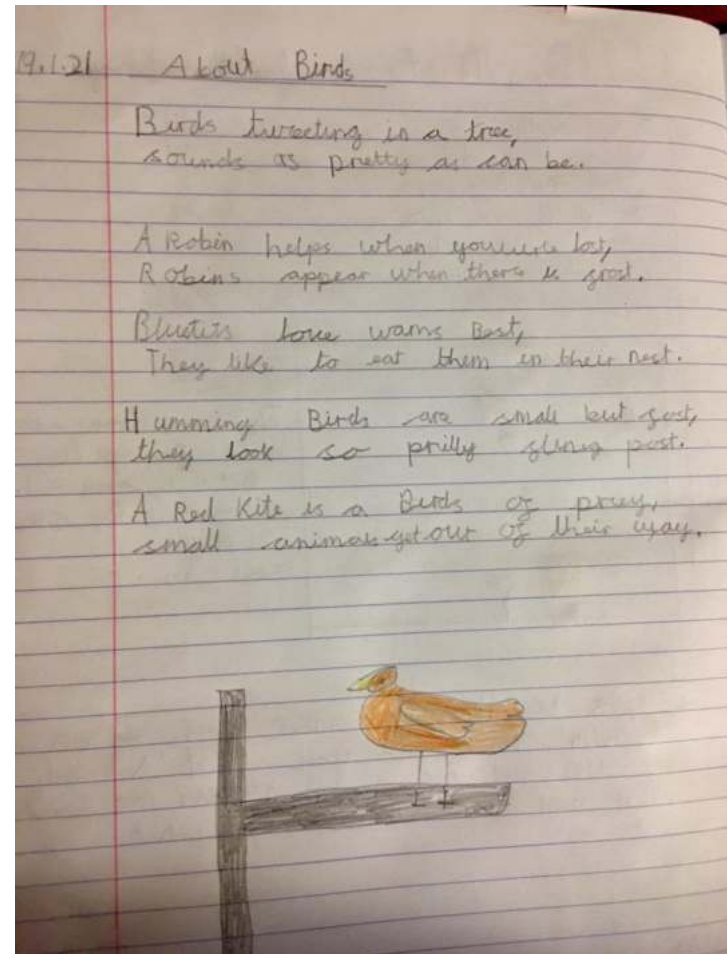 19.1.21 About Birds
Birds tweeting in a tree,
sounds as pretty as can be.
A Robin helps when you're lost,
Robins appear when there is frost.
Bluetits love worms Best,
They like to eat them in their nest.
Humming Birds are small but fast,
they look so pretty flying past.
A Red Kite is a Birds of prey,
small animals get out of their way.